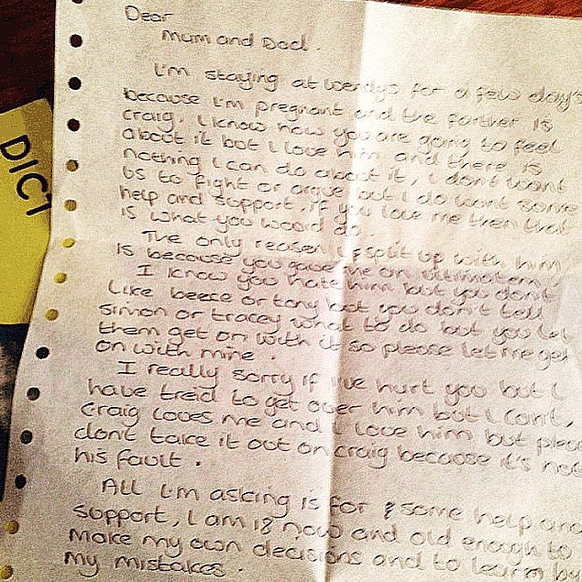 DICT
Dear
Mum and Dad.
I'm staying at wendys for a few day's
because I'm pregnant and the farther is
craig, I know how you are going to feel
about it but I love him and there is
nothing I can do about it, I dont want
us to fight or argue but I do want some
help and support, if you love me then that
is what you would do.
The only reason I split up with him
is because you gave me an ultimatem,
I know you hate him but you don't
like beece or tony but you don't tell
simon or tracey what to do but you let
them get on with it so please let me get
on with mine.
I really sorry if i've hurt you but I
have treid to get over him but I can't,
Craig loves me and I love him but pleas
don't take it out on craig because it's not
his fault.
All I'm asking is for some help and
support, I am 18 now and old enough to
make my own decisions and to learn by
my mistakes.